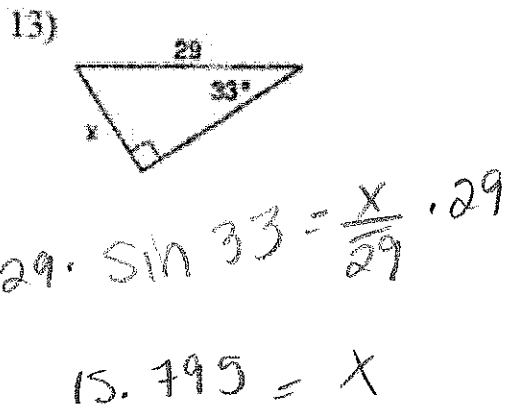 13)
29
33°
x
29 · sin 33 = x/29 · 29
15.795 = x